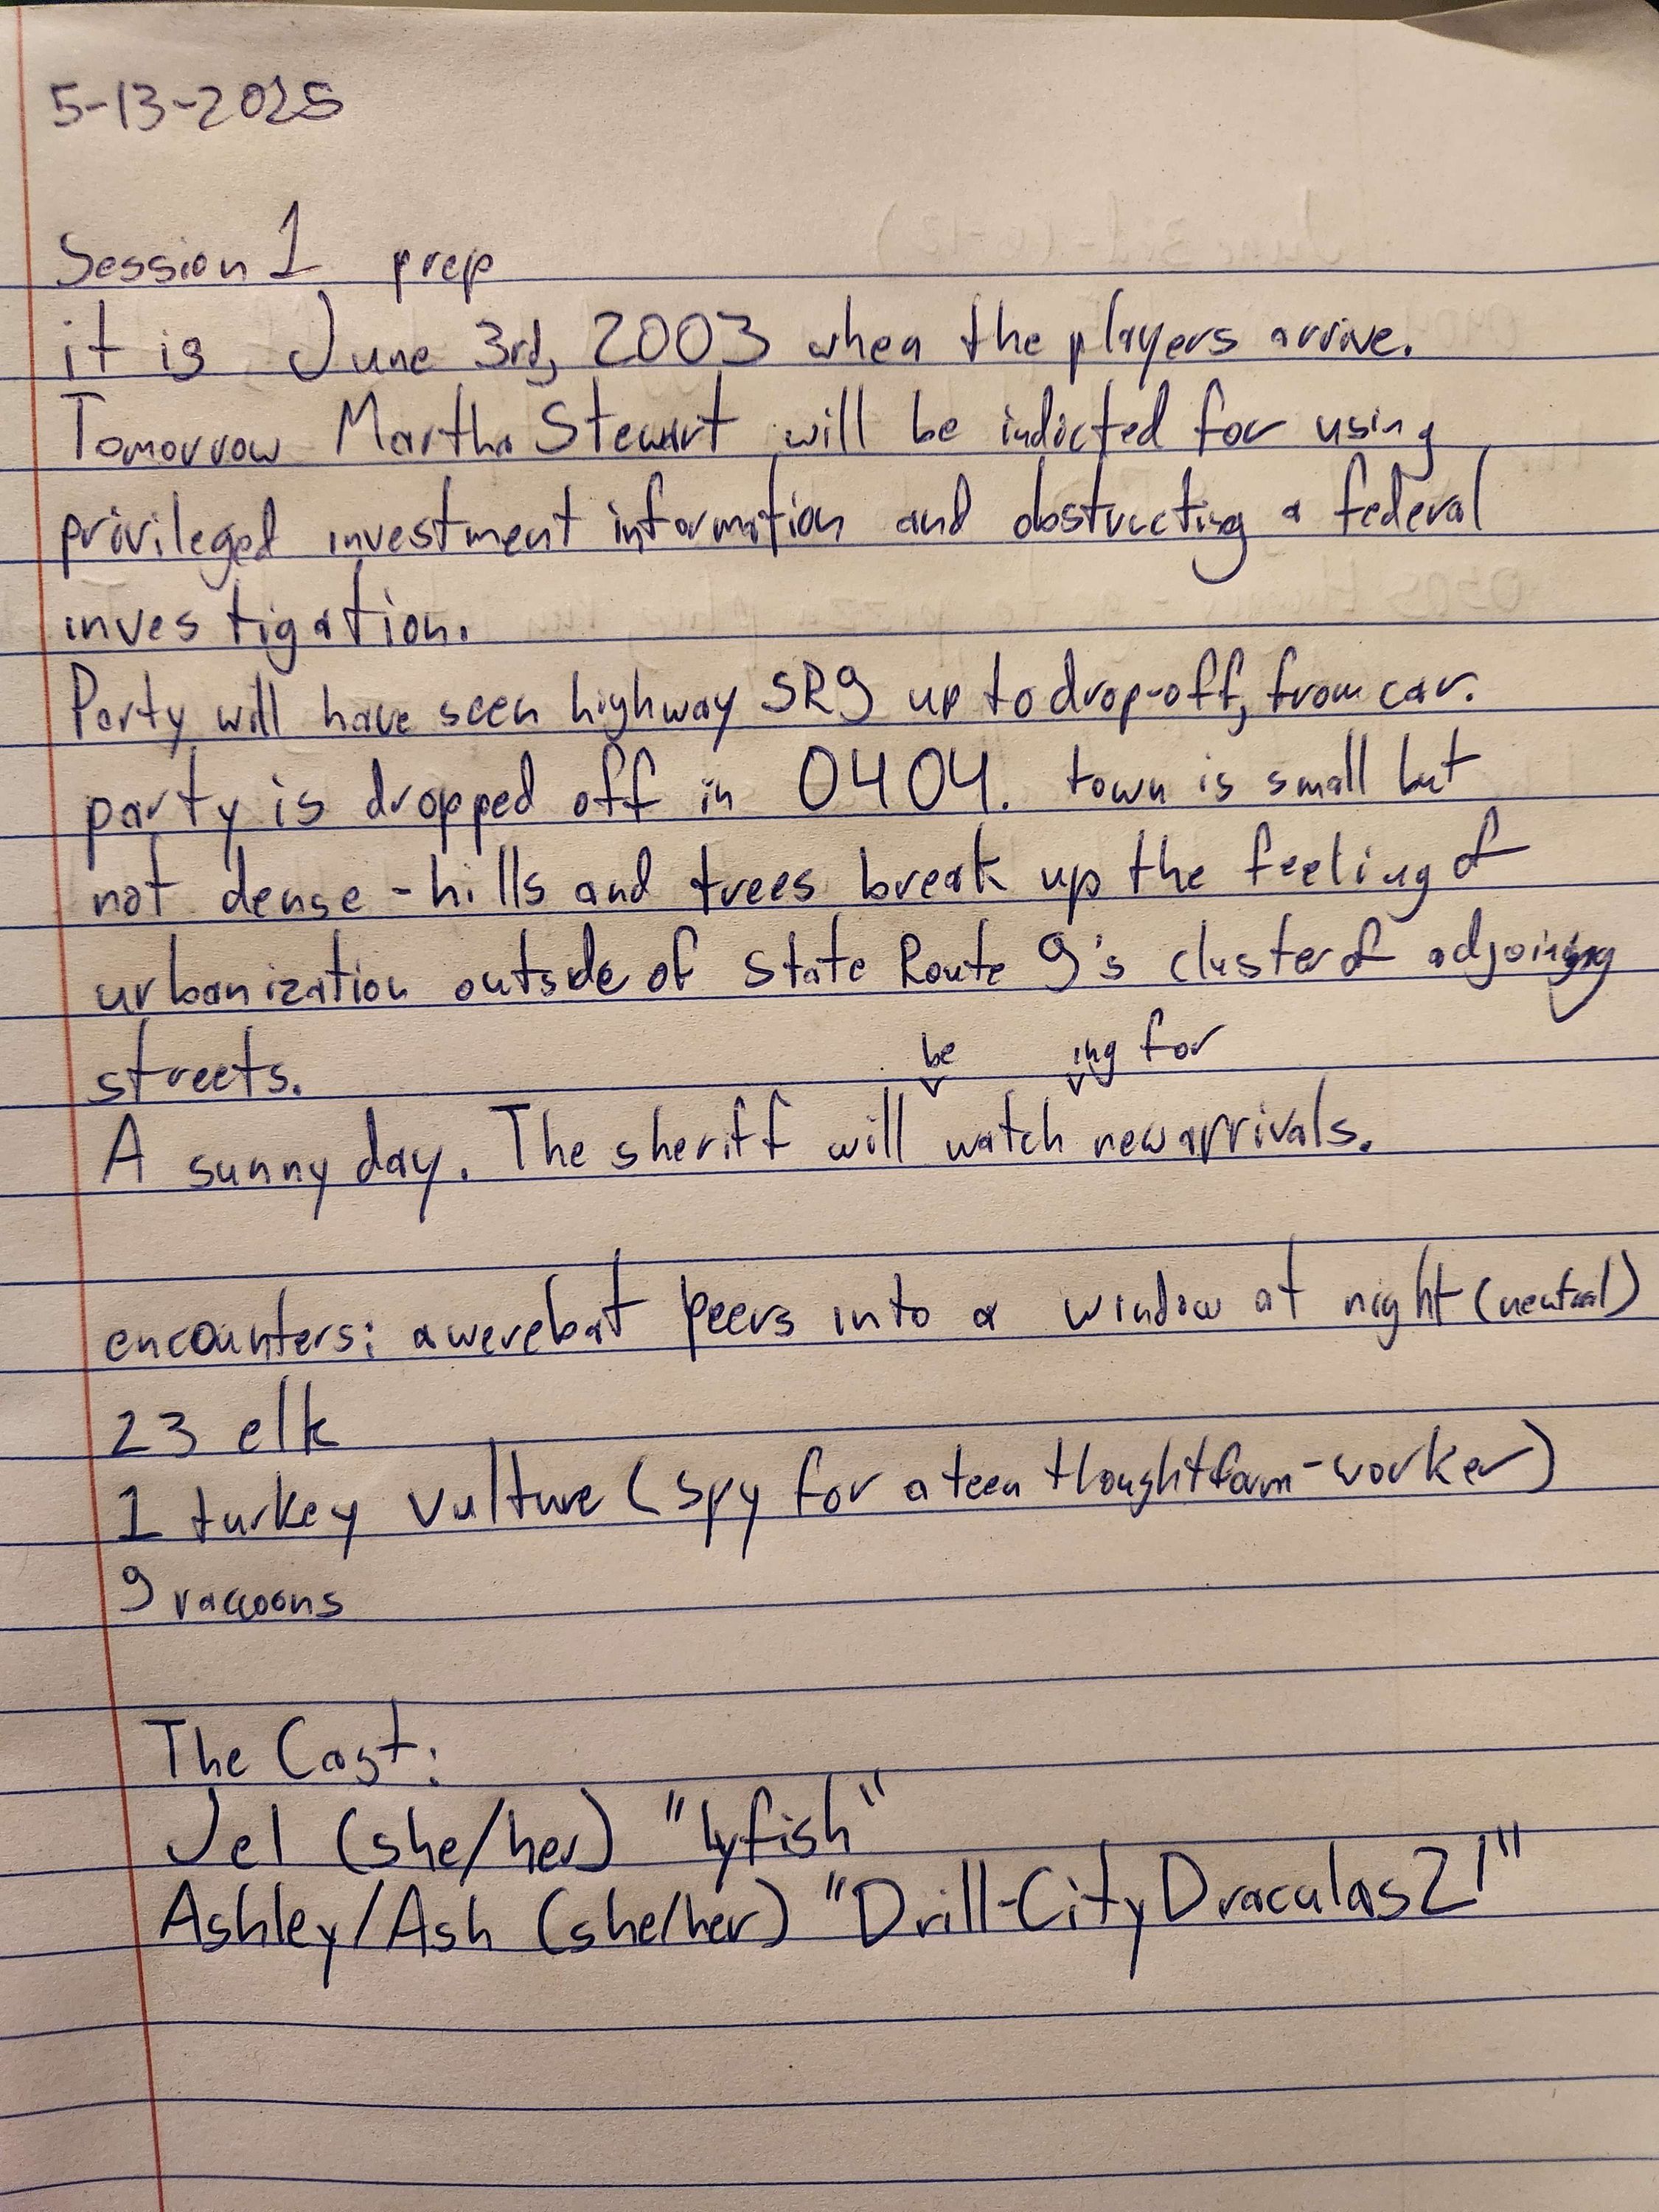 5-13-2025
Session 1 prep
it is June 3rd, 2003 when the players arrive.
Tomorrow Martha Stewart will be indicted for using
privileged investment information and obstructing a federal
investigation.
Party will have seen highway SR9 up to drop-off, from car.
party is dropped off in 0404. town is small but
not dense - hills and trees break up the feeling of
urbanization outside of State Route 9's cluster of adjoining
streets.
be ing for
A sunny day. The sheriff will watch new arrivals.
encounters: a werebat peers into a window at night (neutral)
23 elk
1 turkey vulture (spy for a teen thoughtform-worker)
9 raccoons
The Cast:
Jel (she/her) "lyfish"
Ashley/Ash (she/her) "Drill-CityDraculas21"